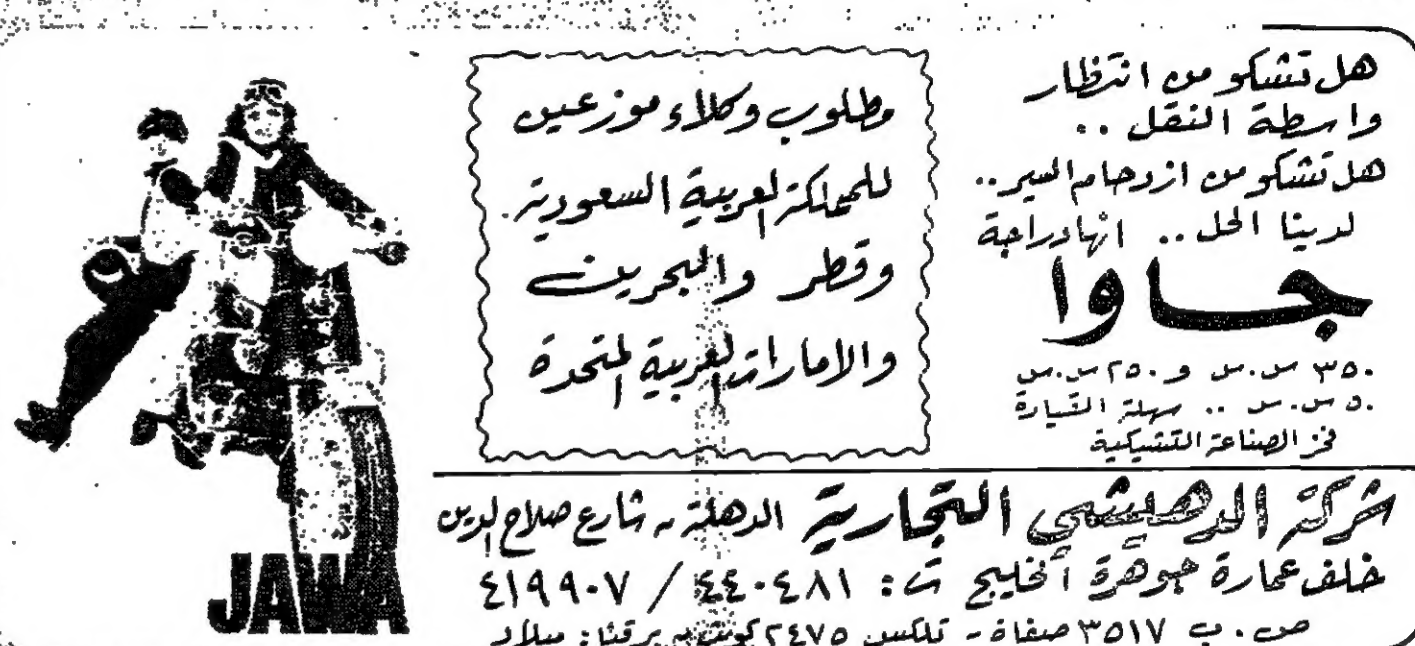 هل تشكو من انتظار
واسطة النقل ..
هل تشكو من ازدحام السير ..
لدينا الحل .. انها دراجة
جاوا
٣٥٠ س.س و ٢٥٠ س.س
٥٠ س.س .. سهلة القيادة
فخر الصناعة التشيكية
مطلوب وكلاء موزعين
للمملكة العربية السعودية .
وقطر والبحرين
والامارات العربية المتحدة
شركة الدهيشي التجارية الدهلة - شارع صلاح الدين
خلف عمارة جوهرة الخليج ت : ٤٤٠٤٨١ / ٤١٩٩٠٧
ص . ب ٣٥١٧ صفاة - تلكس ٢٤٧٥ كويت - برقيا : ميلاد
JAWA